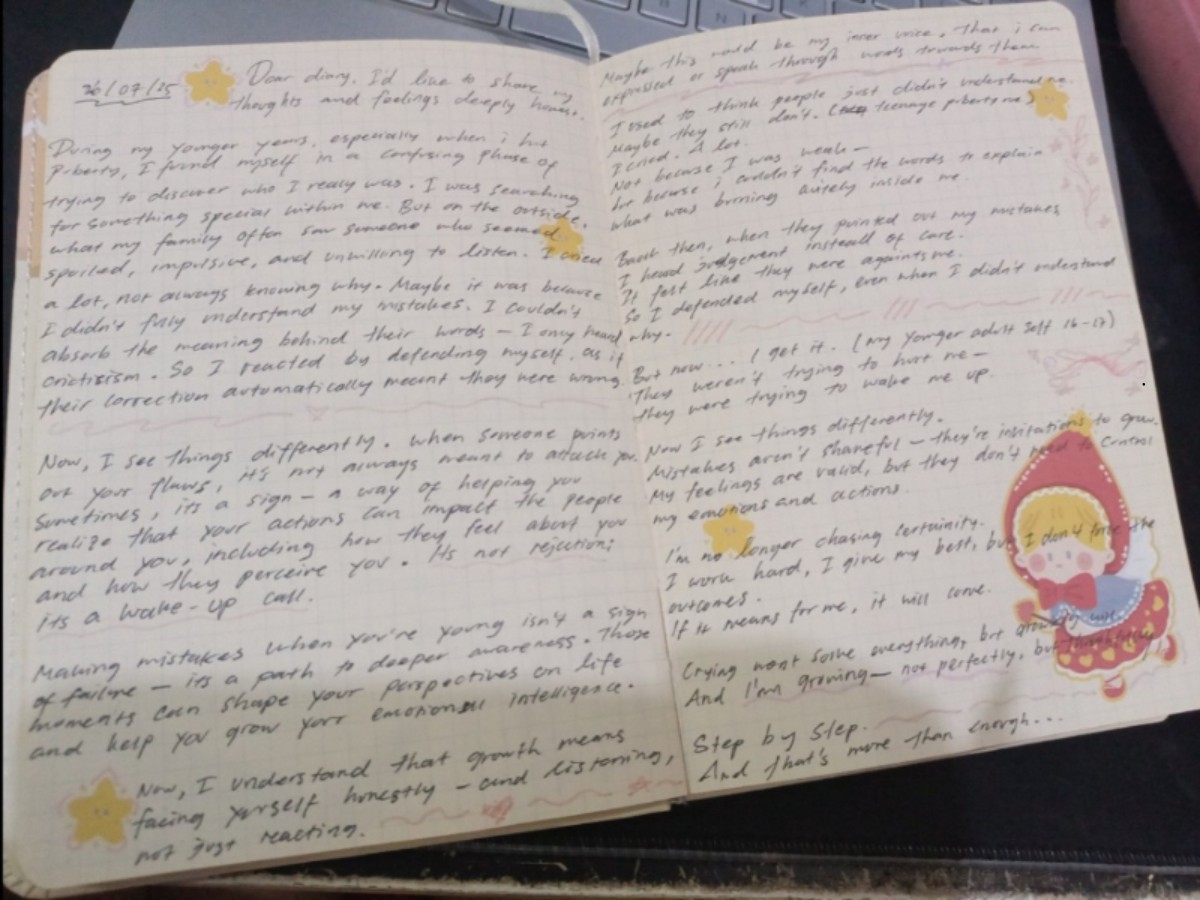 26/07/25
Dear diary, I'd like to share my
thoughts and feelings deeply honest.
During my younger years, especially when i hit
Puberty, I found myself in a confusing phase of
trying to discover who I realy was. I was searching
for something special within me. But on the outside,
what my family often saw someone who seemed
spoiled, impulsive, and unwilling to listen. I cried
a lot, not always knowing why. Maybe it was because
I didn't fully understand my mistakes. I couldn't
absorb the meaning behind their words — I only heard
cricticism. So I reacted by defending myself, as if
their correction automatically meant they were wrong.
Now, I see things differently. When someone points
out your flaws, it's not always meant to attack you.
Sometimes, its a sign — a way of helping you
realize that your actions can impact the people
around you, including how they feel about you
and how they perceive you. Its not rejection;
its a wake-up call.
Making mistakes when you're young isn't a sign
of failure — its a path to deeper awareness. Those
moments can shape your perspectives on life
and help you grow your emotional intelligence.
Now, I understand that growth means
facing yourself honestly — and listening,
not just reacting.
Maybe this would be my inner voice, that i can
expressed or speak through words towards them
I used to think people just didn't understand me.
Maybe they still don't. (teenage puberty me)
I cried. A lot.
Not because I was weak —
but because i couldn't find the words to explain
what was burning quietly inside me.
Back then, when they pointed out my mistakes,
I heard judgement instead of care.
It felt like they were againts me.
So I defended myself, even when I didn't understand
why.
But now... I get it. (my younger adult self 16-17)
They weren't trying to hurt me —
they were trying to wake me up.
Now I see things differently.
Mistakes aren't shameful — they're invitations to grow.
My feelings are valid, but they don't need to control
my emotions and actions.
I'm no longer chasing certainity.
I work hard, I give my best, but I don't force the
outcomes.
If it means for me, it will come.
Crying wont solve everything, but growing will.
And I'm growing — not perfectly, but thoughtfully.
Step by Step.
And that's more than enough...